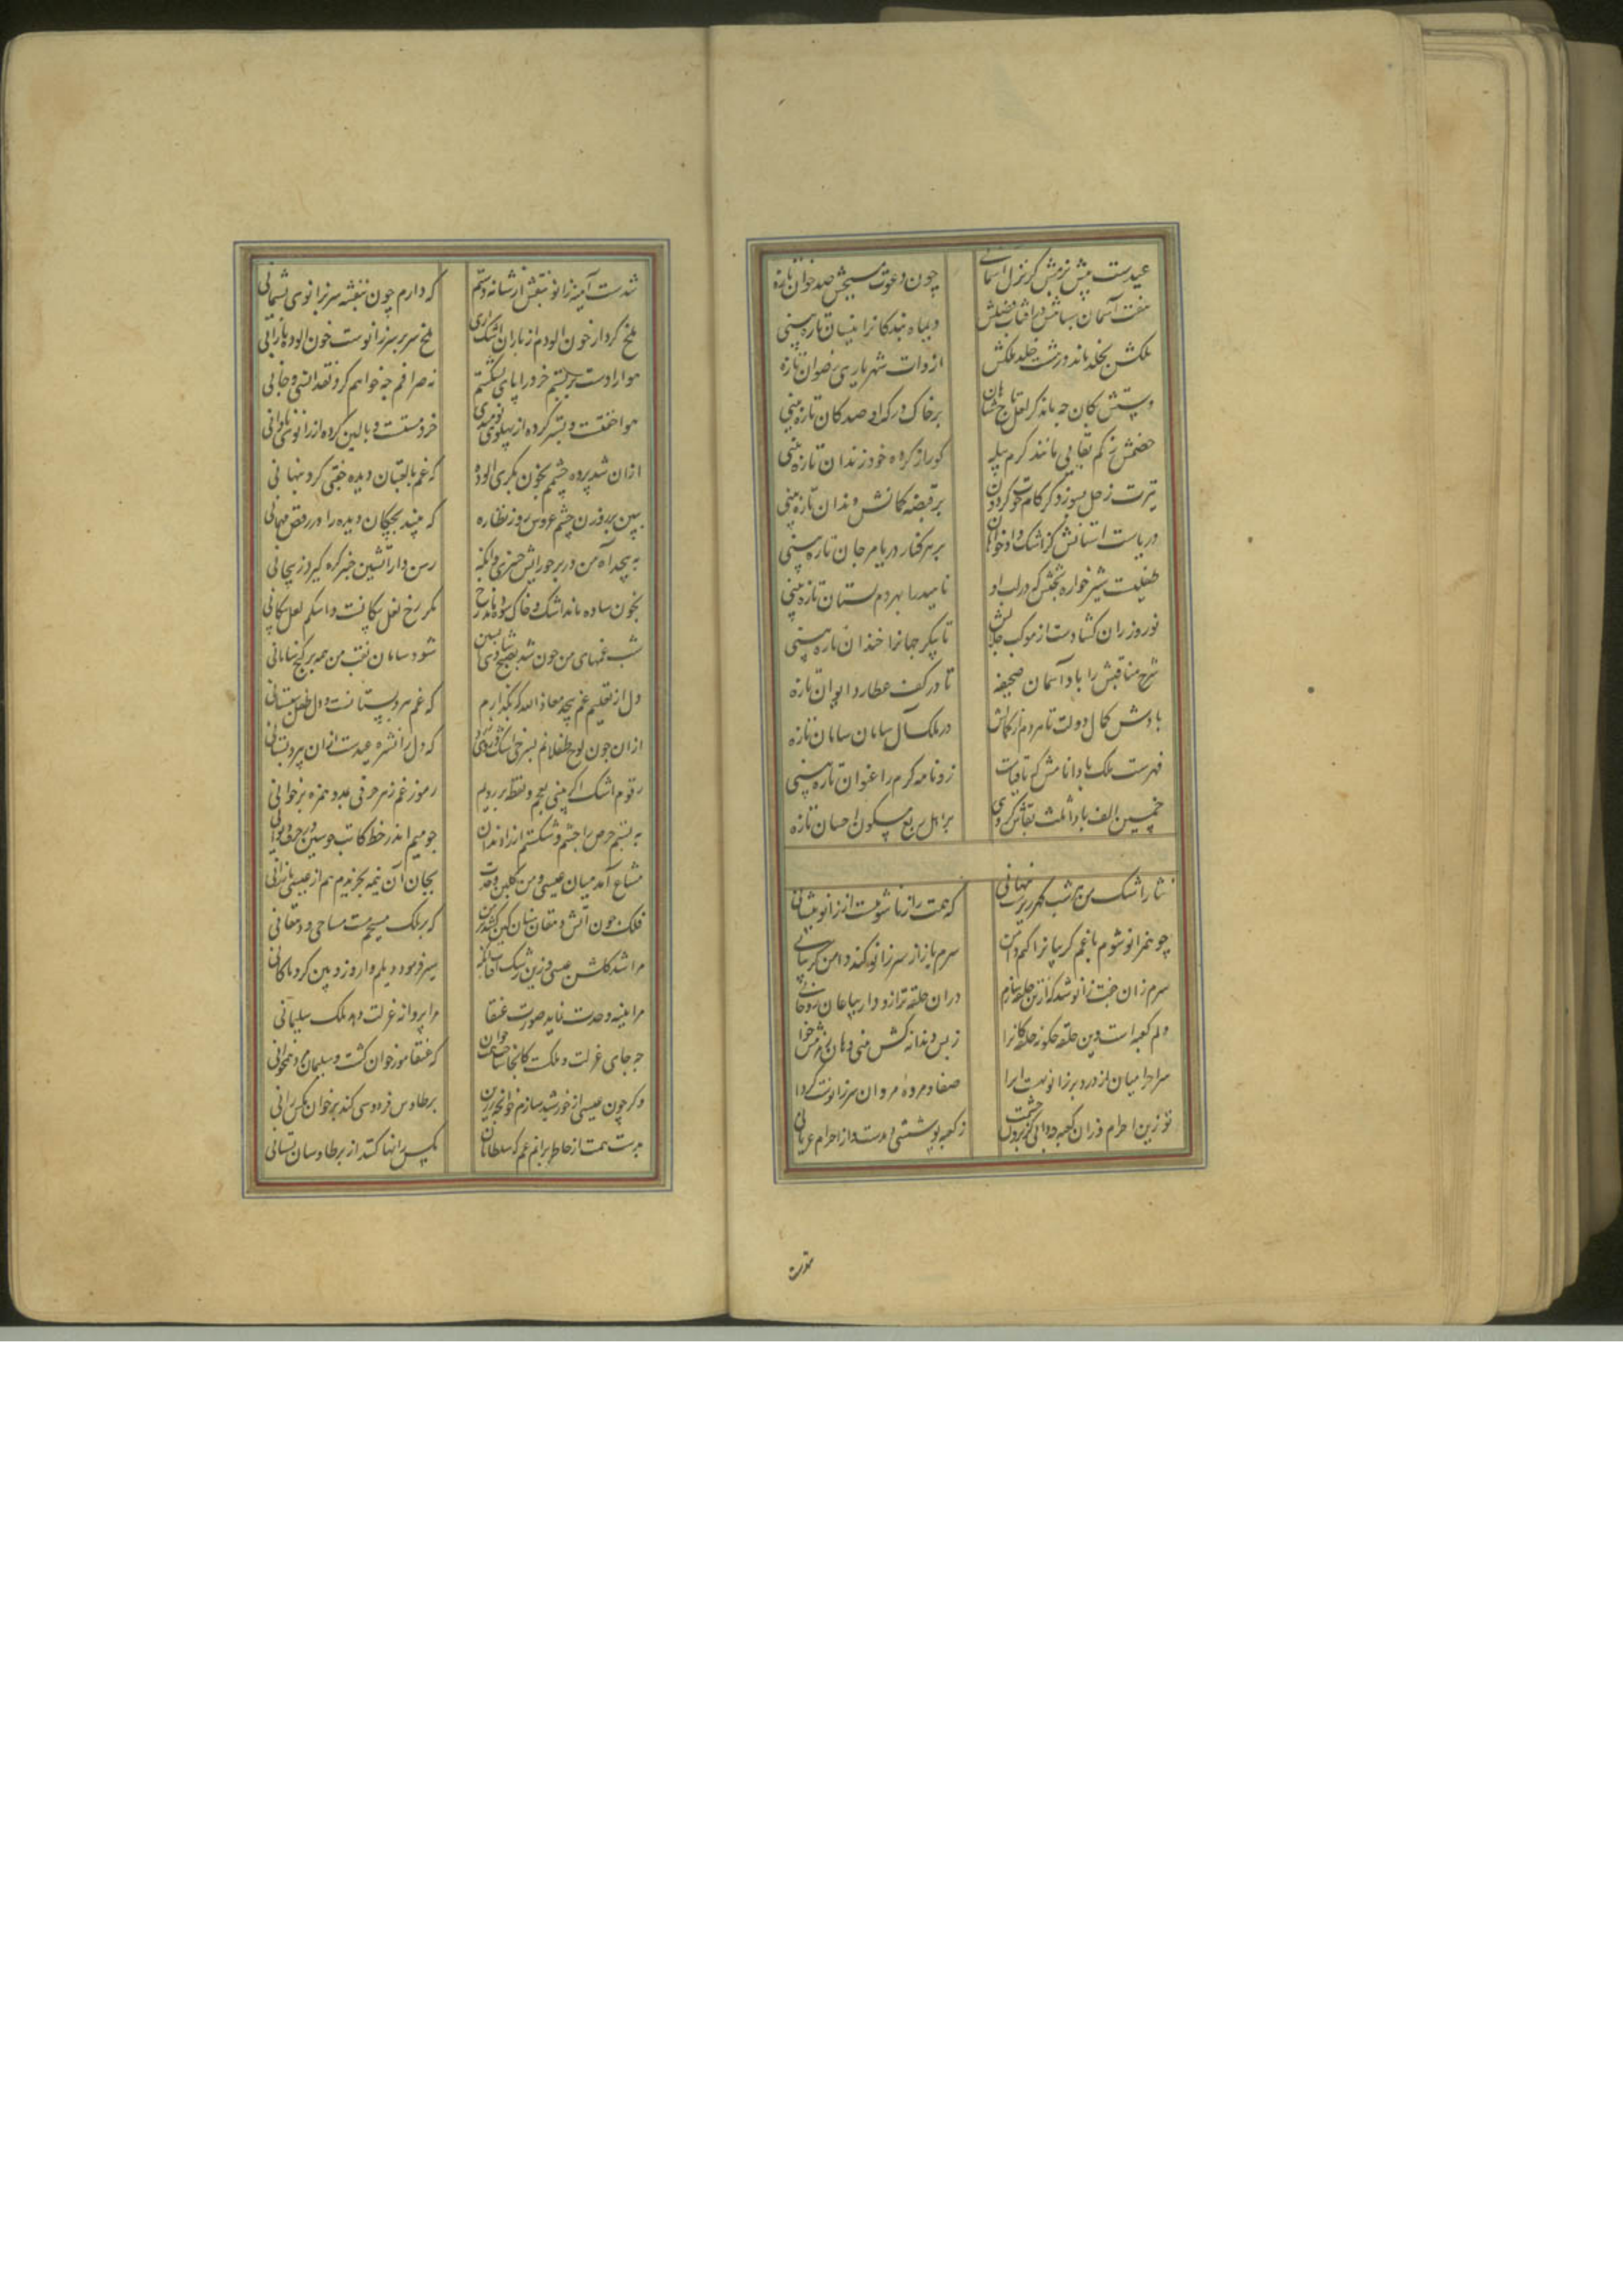 عیدست پیش بزمش کز نزل آسمانی چون دعوت مسیحش صد خوان تازه
هفت آسمان
ملکش بخلد ماند از ذات شهریاری رضوان تازه
دستش بکان چه ماند کز لعل تاج شاهان برخاک درگه او صد کان تازه بینی
خصمش ز کم بقایی مانند کرم پیله کوراز کرده خود زندان تازه بینی
تیرت زحل بسوزد کز کام حوت گردون بر قبضه کمانش دندان تازه بینی
دریاست آستانش کز اشک دادخواهان بر هر کنار دریا مرجان تازه بینی
طفلیست شیرخواره بختش که در لب او ناهید را بهر دم پستان تازه بینی
نوروز ران گشادست از موکب جلالش تا پیکر جهانرا خندان تازه بینی
شرح مناقبش را باد آسمان صحیفه تا در کف عطارد ایوان تازه
بادش کمال دولت تا هر دم از کمالش در ملک آل سامان سامان تازه
فهرست ملک بادا نامش که تا قیامت زو نامه کرم را عنوان تازه بینی
خمسین الف بادا ثلث بقاش کز وی بر اهل ربع مسکون احسان تازه
نثار اشک من هر شب شکرریزیست پنهانی که همت را زناشوئیست از زانو و پیشانی
چو هم زانو شوم با غم گریبانرا کنم دامن سرم باز از سر زانو کند دامن گریبانی
سرم زان جفت زانو شد که از تن حلقه سازم در آن حلقه ترازودار بیاعان روحانی
دلم کعبه است و تن حلقه چگونه حلقه کانرا ز بس دندانه کش بینی دهان زمزمش خوانی
مرا احرامیان از درد بر زانو نهست ایرا صفا و مروه مردان سر زانوست گر دانی
تو زین احرام وزان کعبه چه دانی کز برون چشمت ز کعبه پوششی دیدست و از احرام عریانی
شدست
شدست آینه زانو بنفش از شانه دستم که دارم چون بنفشه سر بزانوی پشیمانی
ملخ کردار خون آلودم از باران اشک آری ملخ سر بر سر زانوست خون آلوده بارانی
هوا را دست بربستم خرد را پای بشکستم نه صرافم چه خواهم کرد نقد انسی و جانی
هوا خفتست و بستر کرده از پهلوی نومیدی خرد مستست و بالین کرده از زانوی نادانی
ازان شد پرده چشمم بخون بکری آلوده که غم با لعبتان دیده جفتی کرد پنهانی
ببین بر روزن چشمم عروس روز نظاره که بیند بچگان دیده را در رقص مهمانی
به پیچد آه من در بر چو آتش چنبری وانگه رسن وار آتشین چنبر گره گیرد ز پیچانی
بخون ساده ماند اشک و خاک سوده ماند رخ مگر رخ نعل پیکانست و اشکم لعل پیکانی
شب غمهای من چون شد بصبح شادی آبستن شود سامان نفت من همه بر گنج سامانی
دل از تعلیم غم پیچد معاذ الله که بگذارم که غم پیر دبستانست و دل طفل شبستانی
ازان چون لوح طفلانم بسرخی اشک که دل را نشره عیدست ازان پیر دبستانی
رقوم اشک اگر بینی بعجم و نقط بر رویم رموز غم ز هر حرفی بمد و همزه برخوانی
به بستم حرص را چشم و شکستم آز را دندان چو میم اندر خط کاتب چو سین در حرف دیوانی
مشاع آمد میان عیسی و من گلبن وحدت بجان آن نیمه بخریدم هم از عیسی بارزانی
فلک چون آتش دهقان سنان کین کشد بر من که بر ملک مسیحم هست مساحی و دهقانی
مرا شد گلشن عیسی وزین رشک آفتاب آنکه سپر فرمود دیلم وار و زوبین کرد ماکانی
مرا بینه وحدت نماید صورت عنقا مرا پروانه عزلت دهد ملک سلیمانی
چه جای عزلت و ملکت کانجا ساخت همت خوان که عنقا مور خوان گشت و سلیمان مرد همخوانی
وگر چون عیسی از خورشید سازم خوانچه زرین پر طاوس فردوسی کند بر خوان مگس رانی
بدست همت از خاطر برانم غم که سلطانان مگس رانها کنند از پر طاوسان بستانی